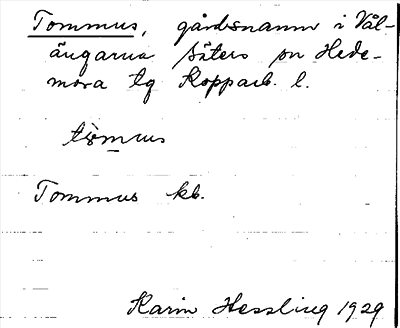 Tommus, gårdsnamn i Vål-
ängarna Säters sn Hede-
mora tg Kopparb. l.
Tommus kb.
Karin Hessling 1929